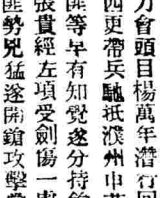 刀會頭目楊萬年潛行
四更帶兵馳祇濮州
匪等早有知覺遂分持
張貴經左項受劍傷一
勢兇猛遂開鎗攻擊